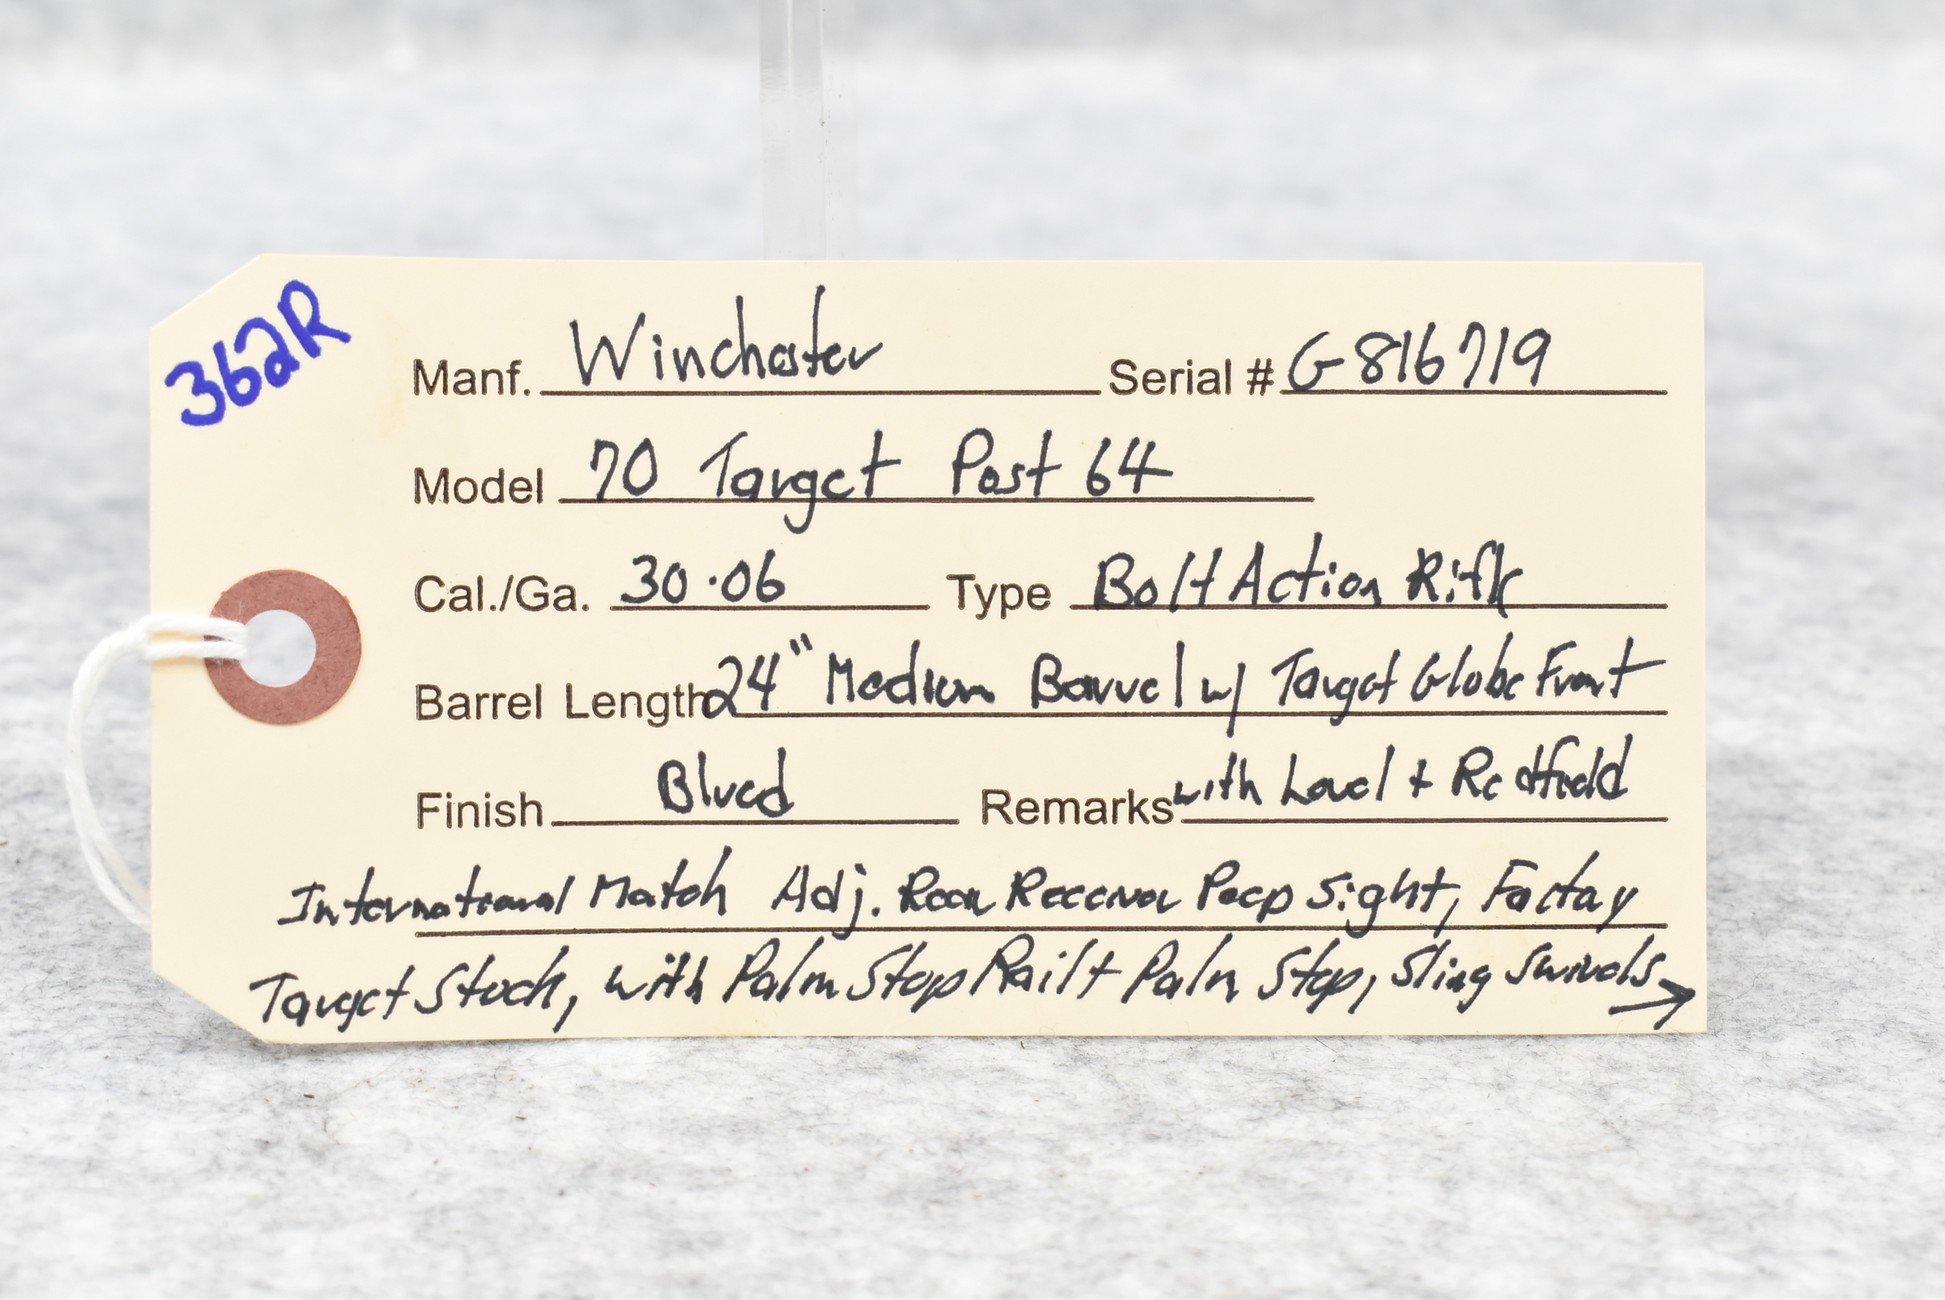 362R
Manf. Winchester Serial # G816719
Model 70 Target Post 64
Cal./Ga. 30.06 Type Bolt Action Rifle
Barrel Length 24" Medium Barrel w/ Target Globe Front
Finish Blued Remarks with Level + Redfield
International Match Adj. Rear Receiver Peep Sight, Factory
Target Stock, with Palm Stop Rail + Palm Stop, Sling Swivels →